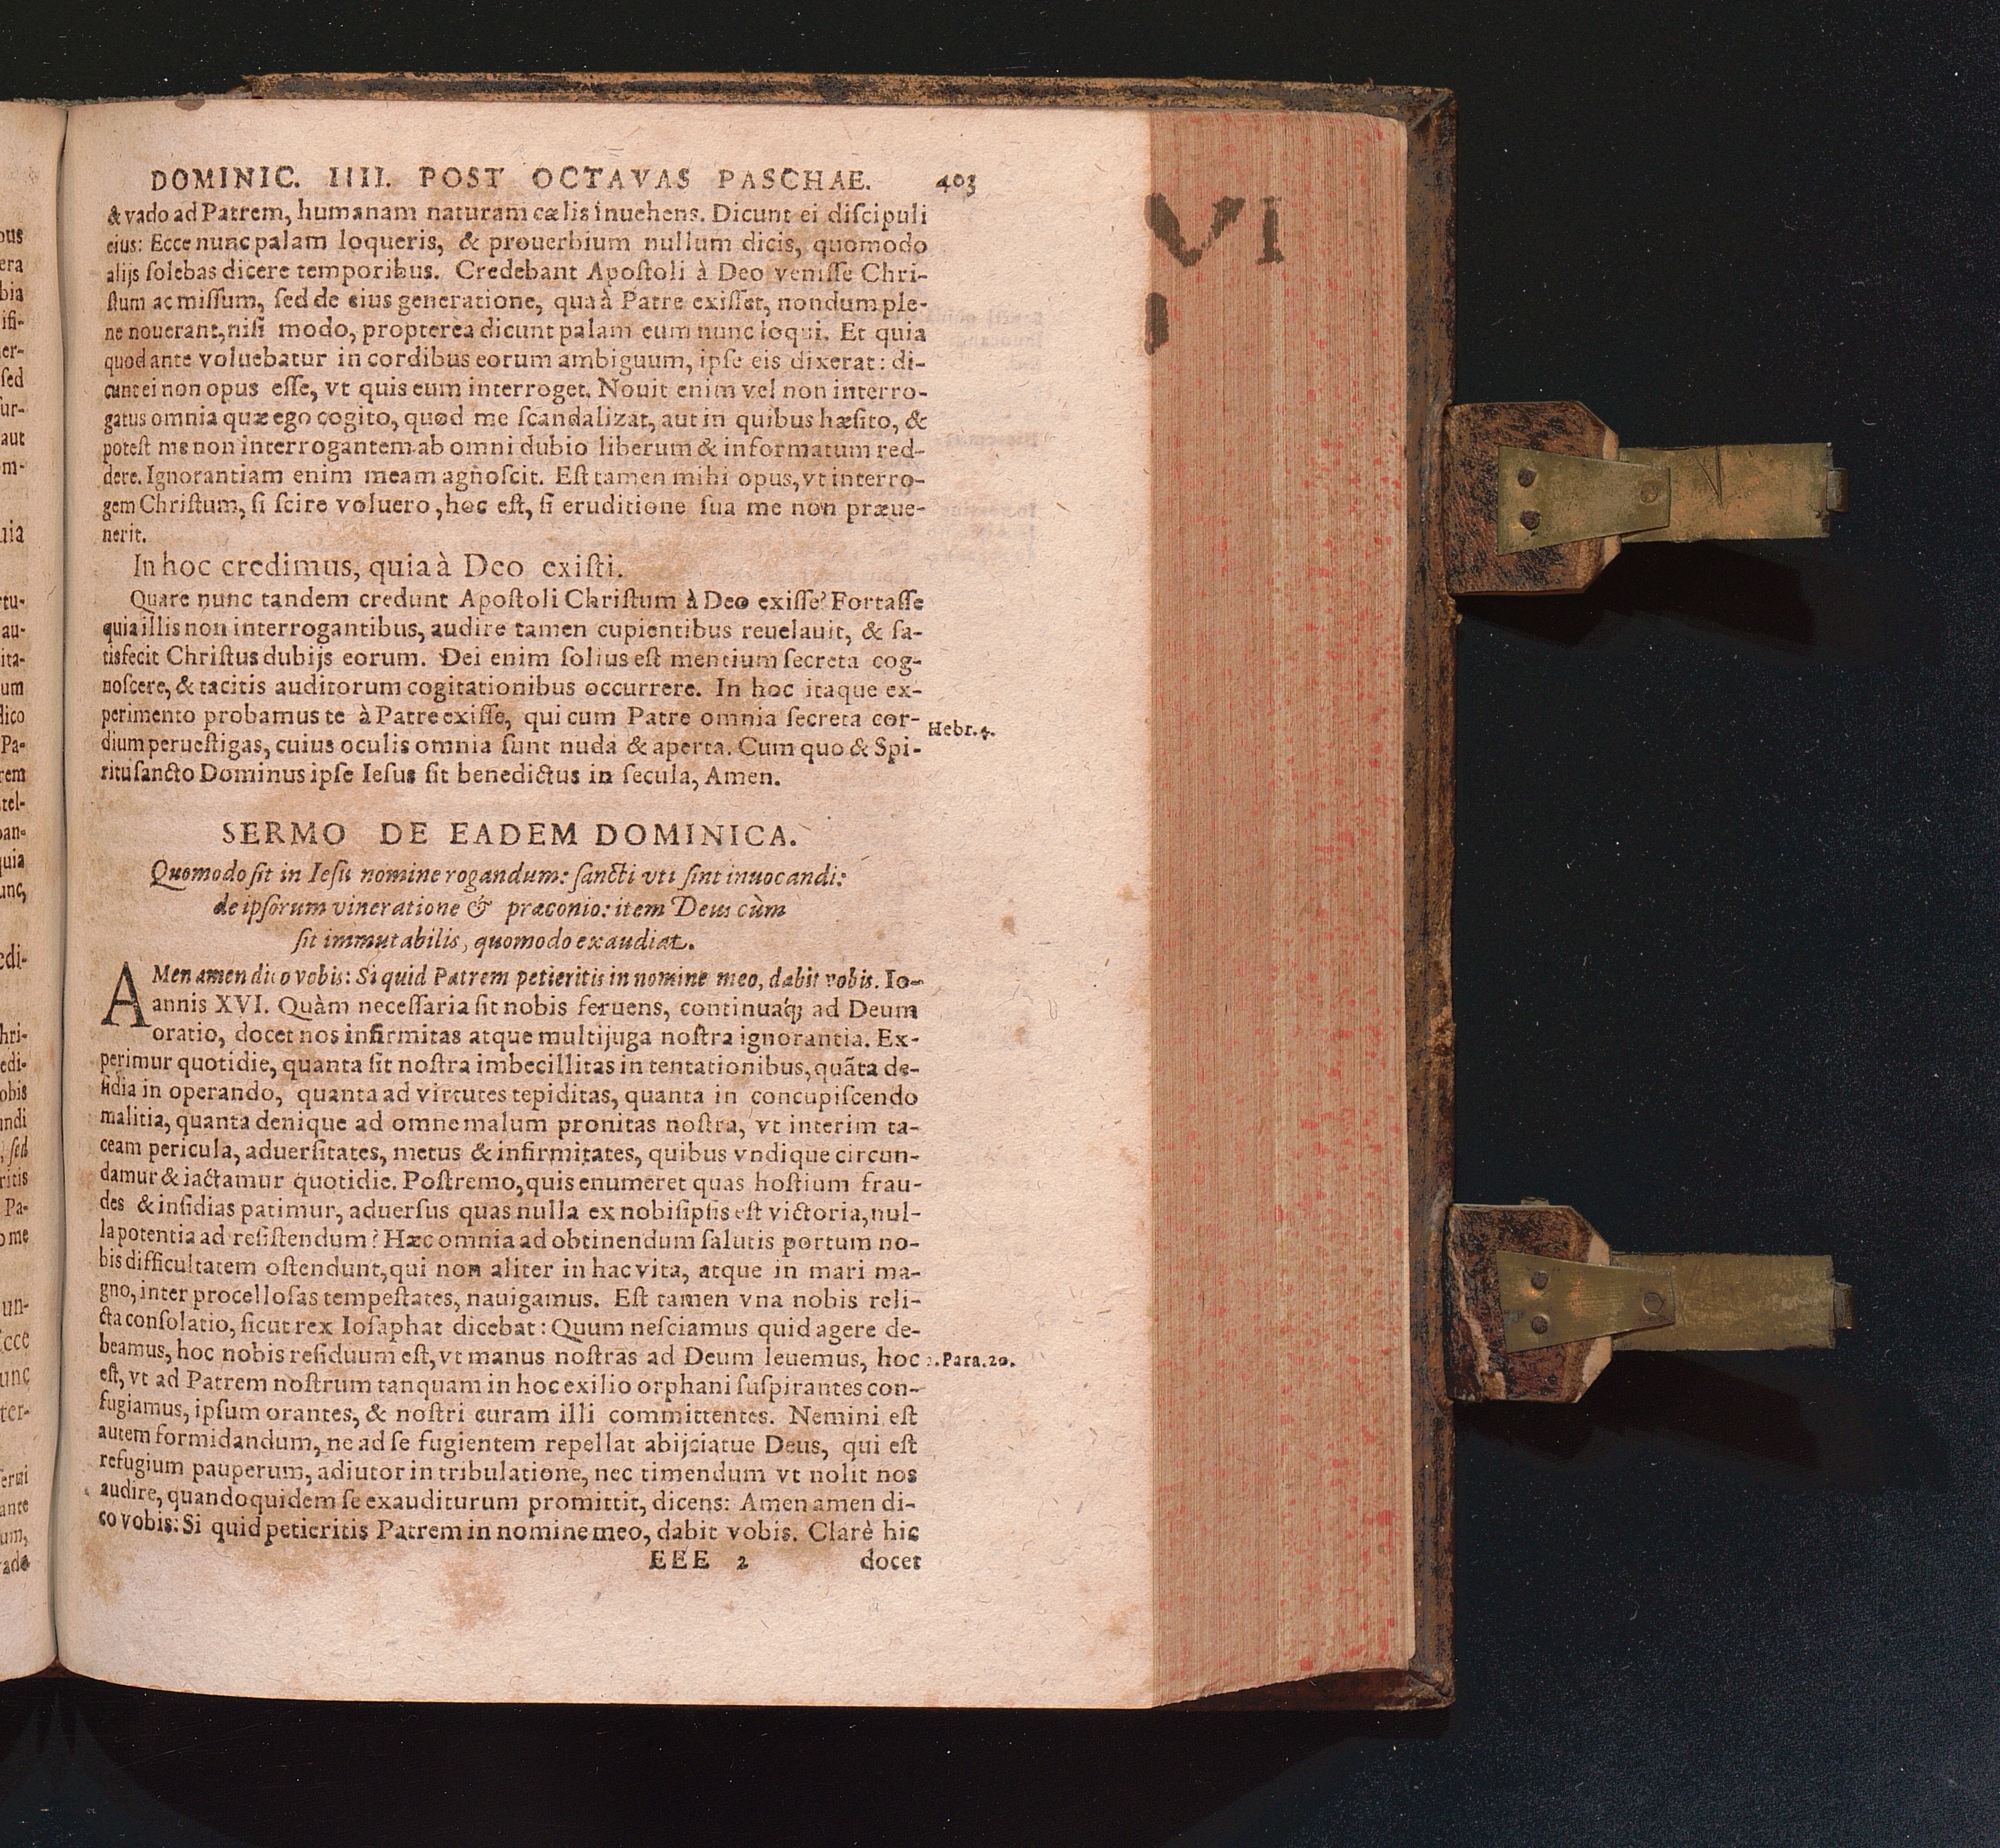 DOMINIC. IIII. POST OCTAVAS PASCHAE. 403
& vado ad Patrem, humanam naturam cælis inuehens. Dicunt ei diſcipuli
eius: Ecce nunc palam loqueris, & prouerbium nullum dicis, quomodo
alijs ſolebas dicere temporibus. Credebant Apoſtoli à Deo veniſſe Chri-
ſtum ac miſſum, ſed de eius generatione, qua à Patre exiſſet, nondum ple-
ne nouerant, niſi modo, propterea dicunt palam eum nunc loqui. Et quia
quod ante voluebatur in cordibus eorum ambiguum, ipſe eis dixerat: di-
cunt ei non opus eſſe, vt quis eum interroget. Nouit enim vel non interro-
gatus omnia quæ ego cogito, quod me ſcandalizat, aut in quibus hæſito, &
poteſt me non interrogantem ab omni dubio liberum & informatum red-
dere. Ignorantiam enim meam agnoſcit. Eſt tamen mihi opus, vt interro-
gem Chriſtum, ſi ſcire voluero, hoc eſt, ſi eruditione ſua me non præue-
nerit.
In hoc credimus, quia à Deo exiſti.
Quare nunc tandem credunt Apoſtoli Chriſtum à Deo exiſſe? Fortaſſe
quia illis non interrogantibus, audire tamen cupientibus reuelauit, & ſa-
tisfecit Chriſtus dubijs eorum. Dei enim ſolius eſt mentium ſecreta cog-
noſcere, & tacitis auditorum cogitationibus occurrere. In hoc itaque ex-
perimento probamus te à Patre exiſſe, qui cum Patre omnia ſecreta cor-
Hebr. 4.
dium perueſtigas, cuius oculis omnia ſunt nuda & aperta. Cum quo & Spi-
ritu ſancto Dominus ipſe Ieſus ſit benedictus in ſecula, Amen.
SERMO DE EADEM DOMINICA.
Quomodo ſit in Ieſu nomine rogandum: ſancti vti ſint inuocandi:
de ipſorum vineratione & præconio: item Deus cùm
ſit immutabilis, quomodo exaudiat.
AMen amen dico vobis: Si quid Patrem petieritis in nomine meo, dabit vobis. Io-
annis XVI. Quàm neceſſaria ſit nobis feruens, continuaq́; ad Deum
oratio, docet nos infirmitas atque multijuga noſtra ignorantia. Ex-
perimur quotidie, quanta ſit noſtra imbecillitas in tentationibus, quãta de-
ſidia in operando, quanta ad virtutes tepiditas, quanta in concupiſcendo
malitia, quanta denique ad omne malum pronitas noſtra, vt interim ta-
ceam pericula, aduerſitates, metus & infirmitates, quibus vndique circun-
damur & iactamur quotidie. Poſtremo, quis enumeret quas hoſtium frau-
des & inſidias patimur, aduerſus quas nulla ex nobiſipſis eſt victoria, nul-
la potentia ad reſiſtendum? Hæc omnia ad obtinendum ſalutis portum no-
bis difficultatem oſtendunt, qui non aliter in hac vita, atque in mari ma-
gno, inter procelloſas tempeſtates, nauigamus. Eſt tamen vna nobis reli-
cta conſolatio, ſicut rex Ioſaphat dicebat: Quum neſciamus quid agere de-
beamus, hoc nobis reſiduum eſt, vt manus noſtras ad Deum leuemus, hoc
2. Para. 20.
eſt, vt ad Patrem noſtrum tanquam in hoc exilio orphani ſuſpirantes con-
fugiamus, ipſum orantes, & noſtri curam illi committentes. Nemini eſt
autem formidandum, ne ad ſe fugientem repellat abijciatue Deus, qui eſt
refugium pauperum, adiutor in tribulatione, nec timendum vt nolit nos
audire, quandoquidem ſe exauditurum promittit, dicens: Amen amen di-
co vobis: Si quid petieritis Patrem in nomine meo, dabit vobis. Clarè hic
EEE 2 docet
VI